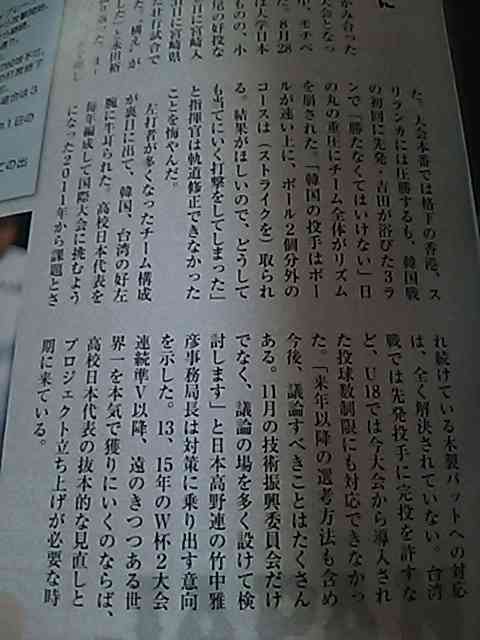 た。大会本番では格下の香港、ス
リランカには圧勝するも、韓国戦
の初回に先発・吉田が浴びた3ラ
ンで「勝たなくてはいけない」日
の丸の重圧にチーム全体がリズム
を崩された。「韓国の投手はボー
ルが速い上に、ボール2個分外の
コースは（ストライクを）取られ
る。結果がほしいので、どうして
も当てにいく打撃をしてしまった」
と指揮官は軌道修正できなかった
ことを悔やんだ。
左打者が多くなったチーム構成
が裏目に出て、韓国、台湾の好左
腕に牛耳られた。高校日本代表を
毎年編成して国際大会に挑むよう
になった2011年から課題とさ
れ続けている木製バットへの対応
は、全く解決されていない。台湾
戦では先発投手に完投を許すな
ど、U18では今大会から導入され
た投球数制限にも対応できなかっ
た。「来年以降の選考方法も含め
今後、議論すべきことはたくさん
ある。11月の技術振興委員会だけ
でなく、議論の場を多く設けて検
討します」と日本高野連の竹中雅
彦事務局長は対策に乗り出す意向
を示した。13、15年のW杯2大会
連続準V以降、遠のきつつある世
界一を本気で獲りにいくのならば、
高校日本代表の抜本的な見直しと
プロジェクト立ち上げが必要な時
期に来ている。